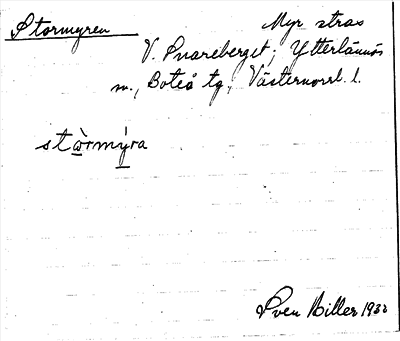 Stormyren Myr strax
V. Snareberget; Ytterlännäs
sn., Boteå tg, Västernorrl. l.
stòrmýra
Sven Biller 1932